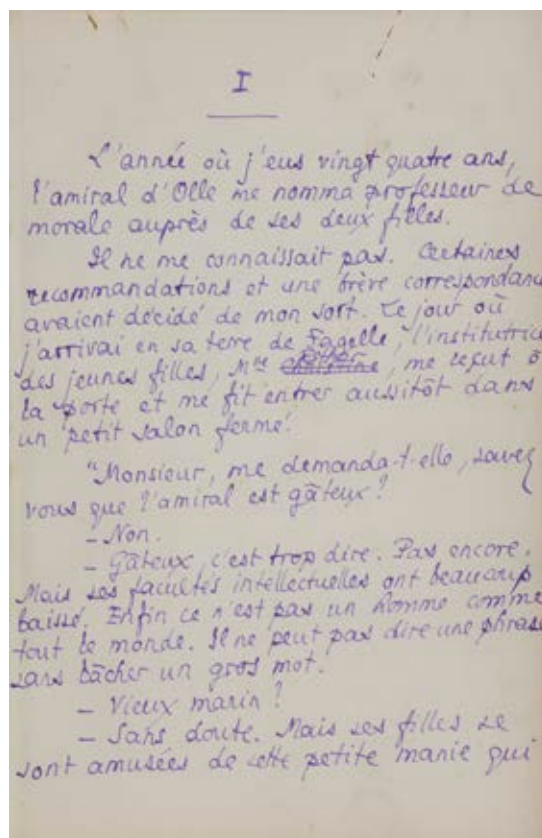 I
L'année où j'eus vingt quatre ans,
l'amiral d'Olle me nomma professeur de
morale auprès de ses deux filles.
Il ne me connaissait pas. Certaines
recommandations et une brève correspondanc
avaient décidé de mon sort. Le jour où
j'arrivai en sa terre de Fagelle, l'institutric
des jeunes filles, Mme, me reçut à
la porte et me fit entrer aussitôt dans
un petit salon fermé.
"Monsieur, me demanda-t-elle, savez
vous que l'amiral est gâteux?
– Non.
– Gâteux, c'est trop dire. Pas encore.
Mais ses facultés intellectuelles ont beaucoup
baissé. Enfin ce n'est pas un homme comme
tout le monde. Il ne peut pas dire une phrase
sans lâcher un gros mot.
– Vieux marin?
– Sans doute. Mais ses filles se
sont amusées de cette petite manie qui